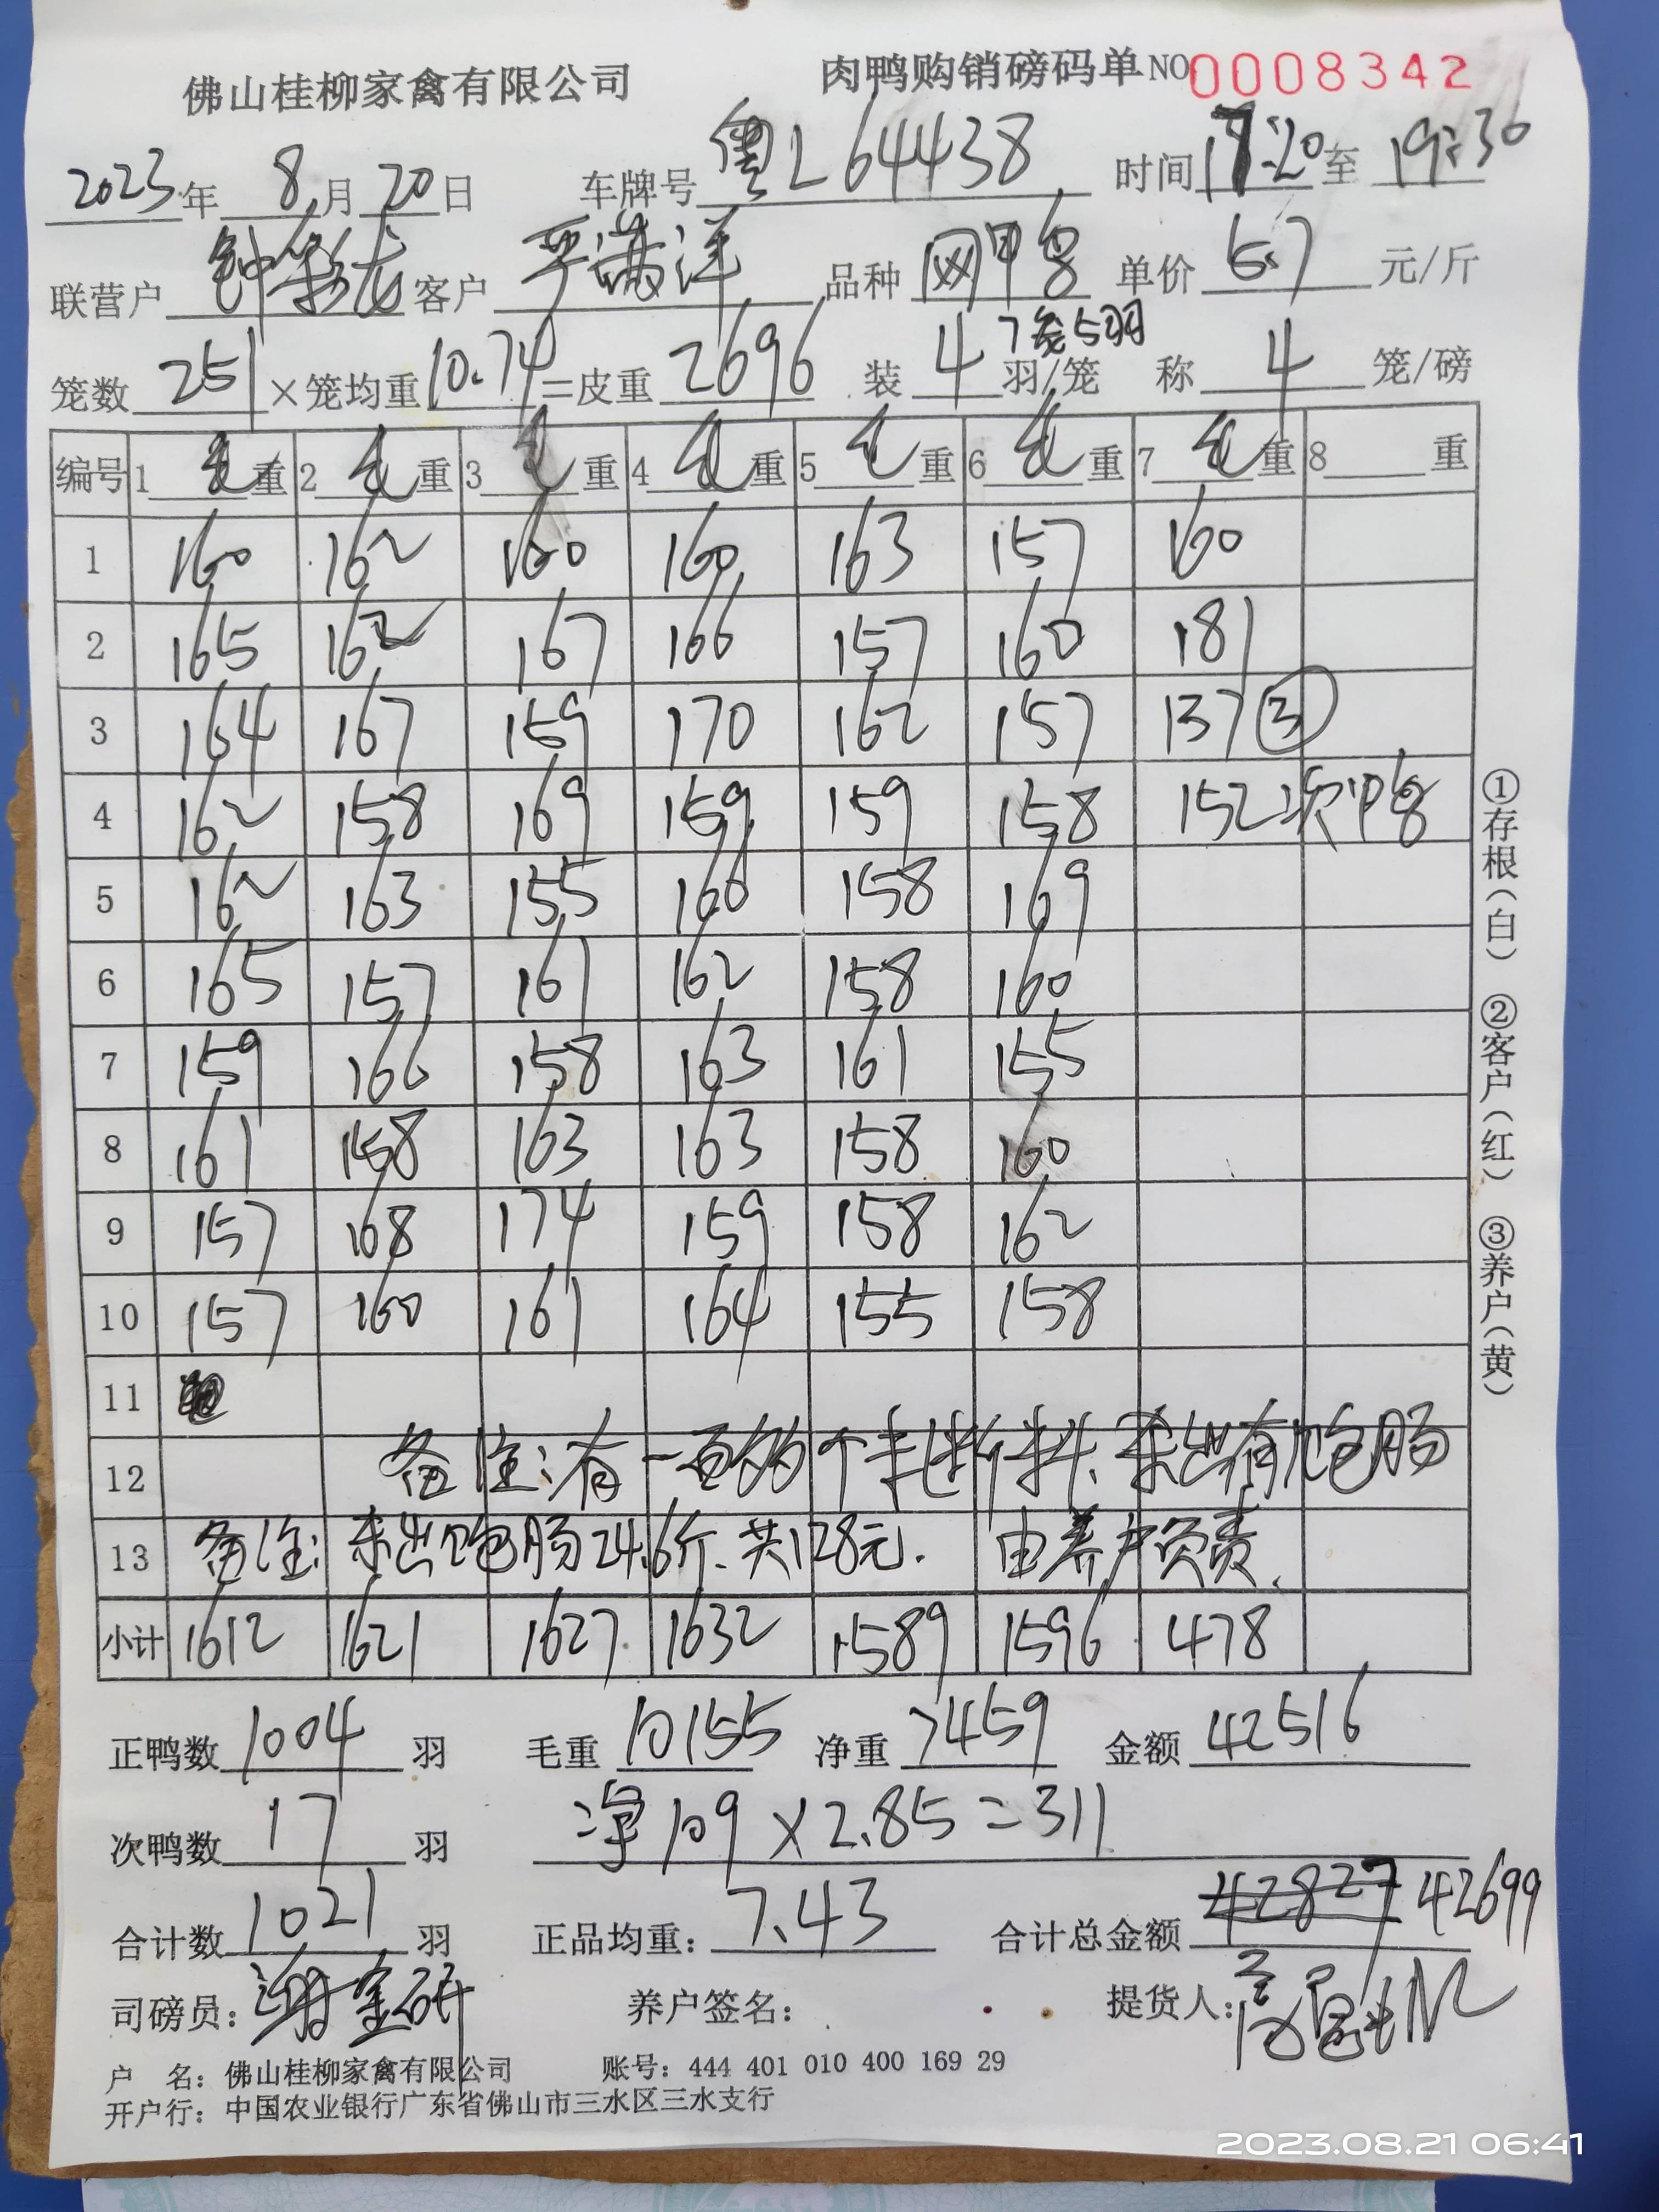 佛山桂柳家禽有限公司 肉鸭购销磅码单 NO 0008342
2023年 8月 20日 车牌号 粤L64438 时间 17:20 至 19:30
联营户 钟彩龙 客户 严满洋 品种 网甲鸟 单价 5.7 元/斤
7笼5羽
笼数 251 ×笼均重 10.74 =皮重 2696 装 4 羽/笼 称 4 笼/磅
编号 1 毛重 2 毛重 3 毛重 4 毛重 5 毛重 6 毛重 7 毛重 8 重
1 160 162 160 160 163 157 160
2 165 162 167 166 157 160 181
3 164 167 159 170 162 157 137 ③
4 162 158 169 159 159 158 152 次鸭
5 162 163 155 166 158 169
6 165 157 161 162 158 160
7 159 166 158 163 161 155
8 161 158 163 163 158 160
9 157 168 174 159 158 162
10 157 160 161 164 155 158
11
12 备注:有一百多个毛 未出有饱肠
13 备注:未出饱肠24.6斤、共128元. 由养户负责.
小计 1612 1621 1627 1632 1589 1596 478
正鸭数 1004 羽 毛重 10155 净重 7459 金额 42516
次鸭数 17 羽 净109×2.85=311
合计数 1021 羽 正品均重: 7.43 合计总金额 42827 42699
司磅员: 谢金研 养户签名: 提货人:
户 名: 佛山桂柳家禽有限公司 账号: 444 401 010 400 169 29
开户行: 中国农业银行广东省佛山市三水区三水支行
①存根(白) ②客户(红) ③养户(黄)
2023.08.21 06:41